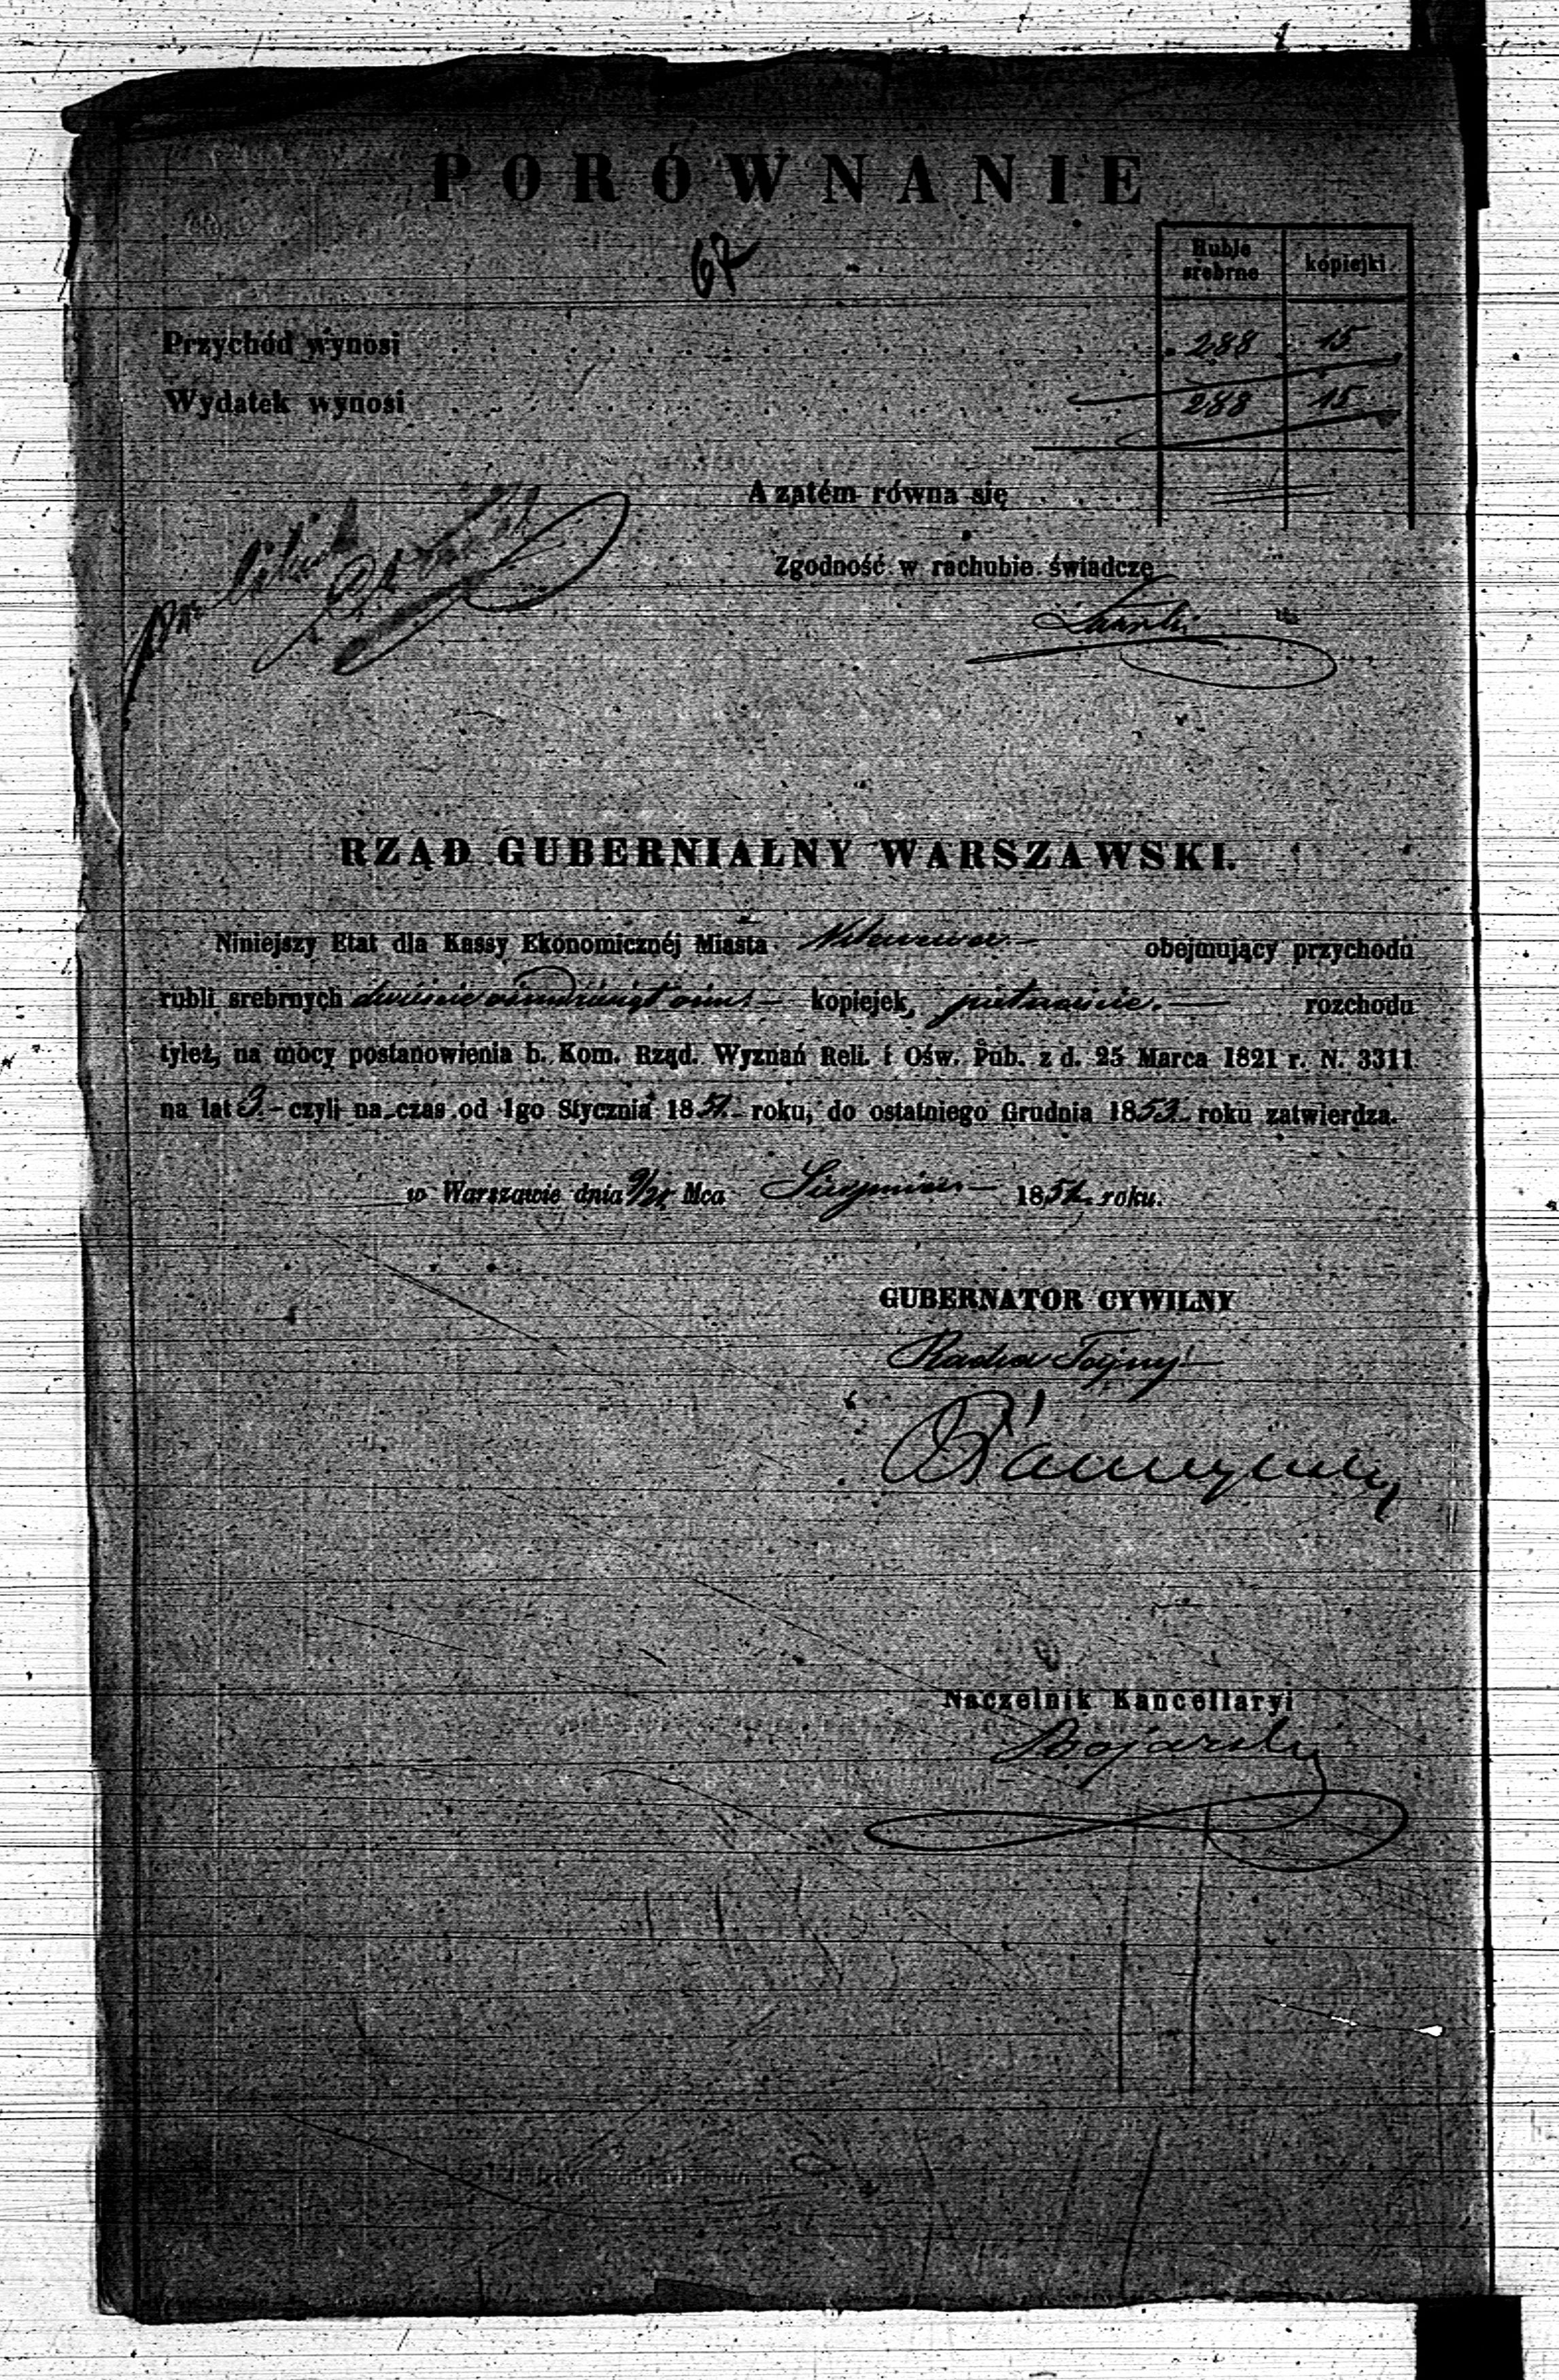 PORÓWNANIE
67
Ruble srebrne
kopiejki
Przychód wynosi 288 15
Wydatek wynosi 288 15
A zatém równa się
Zgodność w rachubie świadczę
RZĄD GUBERNIALNY WARSZAWSKI.
Niniejszy Etat dla Kassy Ekonomicznéj Miasta obejmujący przychodu
rubli srebrnych dwieście ośmdziesiąt ośm kopiejek, piętnaście. rozchodu
tyleż, na mocy postanowienia b. Kom. Rząd. Wyznań Reli. i Ośw. Pub. z d. 25 Marca 1821 r. N. 3311
na lat 3. czyli na czas od 1go Stycznia 1851 roku, do ostatniego Grudnia 1853 roku zatwierdza.
w Warszawie dnia 9/21 Mca Sierpnia 1851 roku.
GUBERNATOR CYWILNY
Radca Tajny
Naczelnik Kancellaryi
Bojarski